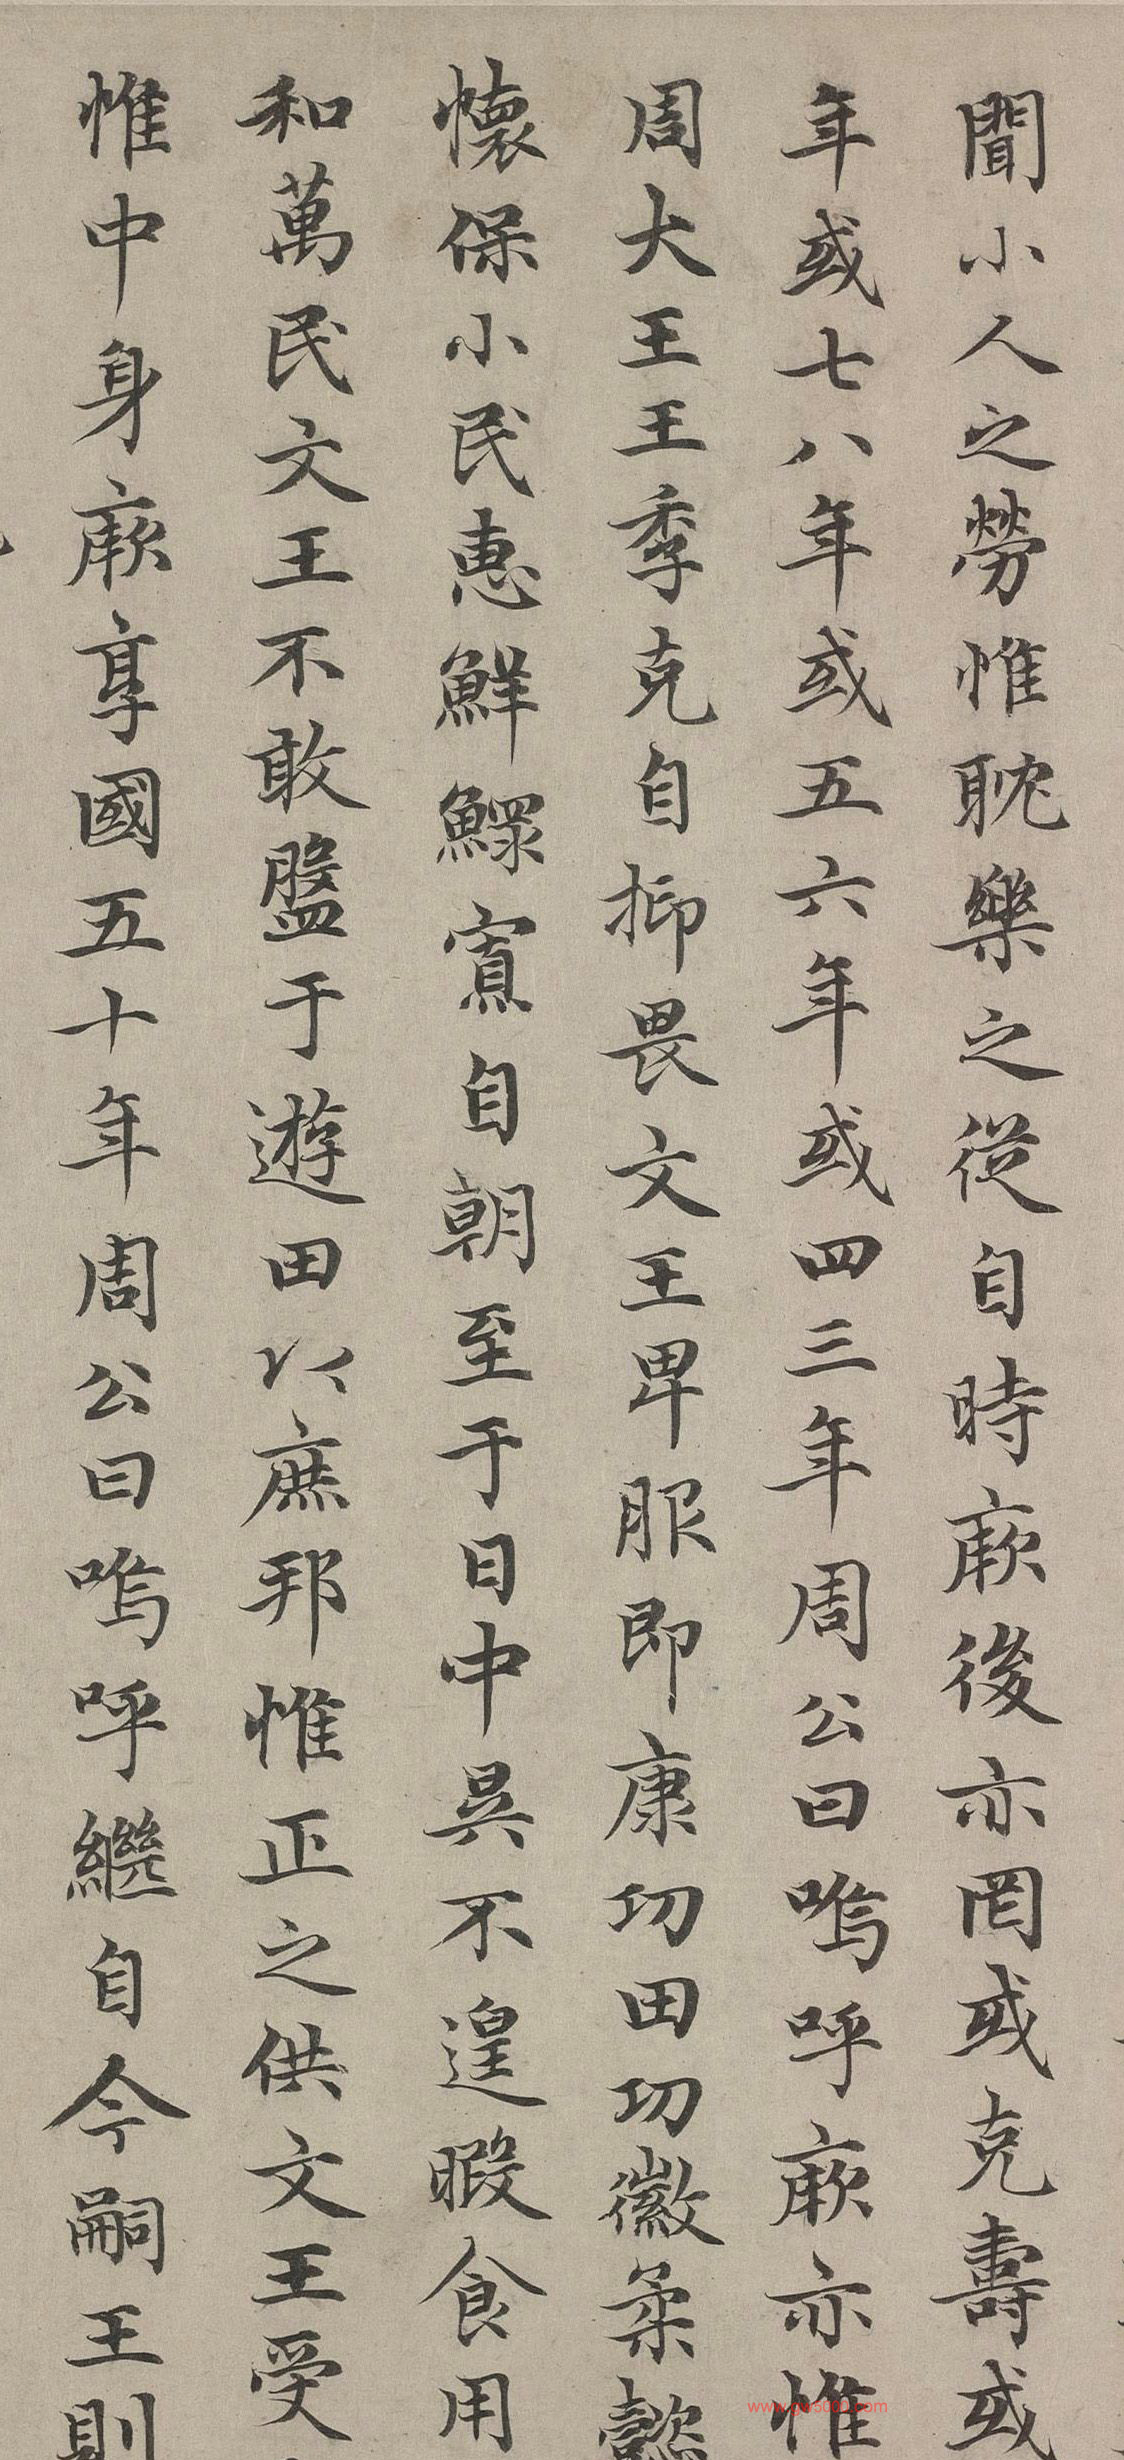 聞小人之勞惟耽樂之從自時厥後亦罔或克壽或
年或七八年或五六年或四三年周公曰嗚呼厥亦惟
周大王王季克自抑畏文王卑服即康功田功徽柔懿
懷保小民惠鮮鰥寡自朝至于日中昃不遑暇食用
和萬民文王不敢盤于遊田以庶邦惟正之供文王受
惟中身厥享國五十年周公曰嗚呼繼自今嗣王則
www.gw5000.com